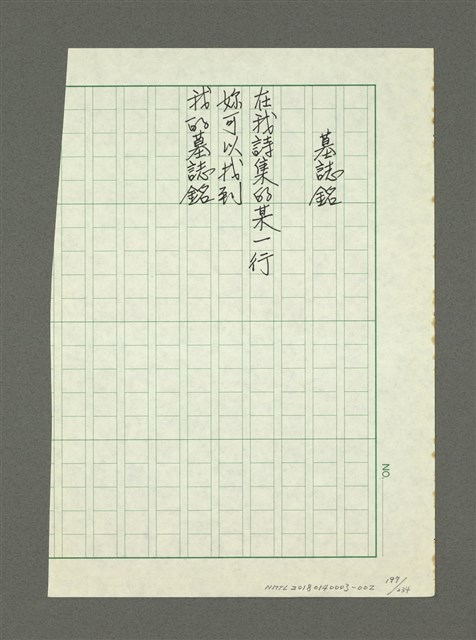 墓誌銘
在我詩集的某一行
妳可以找到
我的墓誌銘
NO.
NMTL20180140003-002
197/284